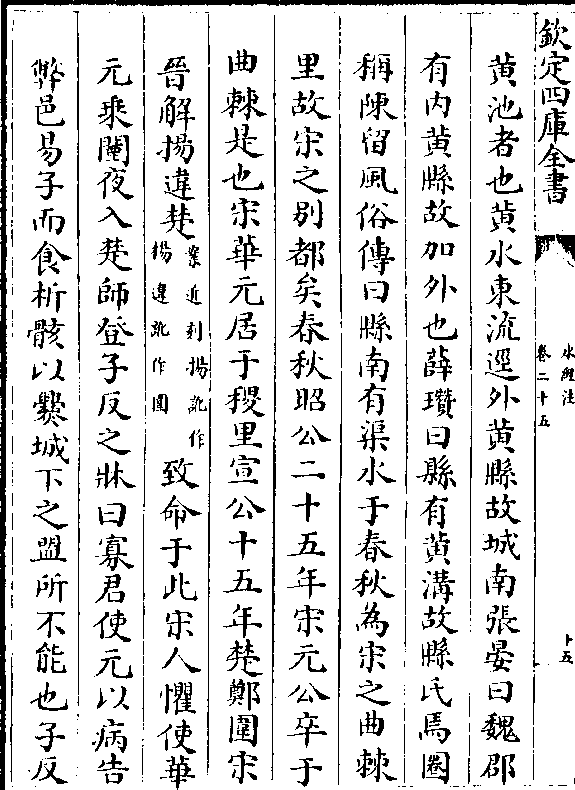 欽定四庫全書
水經注
卷二十五
十五
黄池者也黄水東流逕外黄縣故城南張晏曰魏郡
有内黄縣故加外也薛瓚曰縣有黄溝故縣氏焉圈
稱陳留風俗傳曰縣南有渠水于春秋為宋之曲棘
里故宋之别都矣春秋昭公二十五年宋元公卒于
曲棘是也宋華元居于稷里宣公十五年楚鄭圍宋
晉解揚違楚案近刻揚訛作楊違訛作圍致命于此宋人懼使華
元乘闉夜入楚師登子反之牀曰寡君使元以病告
弊邑易子而食析骸以爨城下之盟所不能也子反